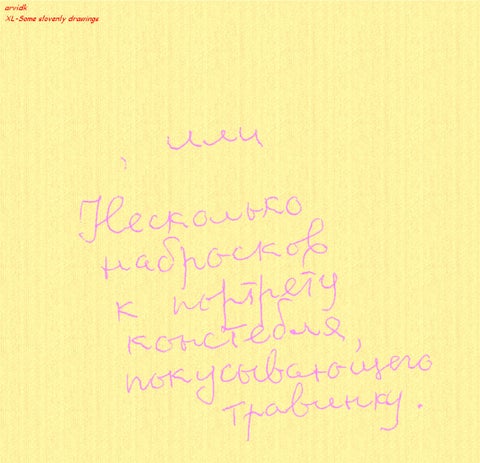 arvidk
XL-Some slovenly drawings
, или
Несколько
набросков
к портрету
констебля,
покусывающего
травинку.